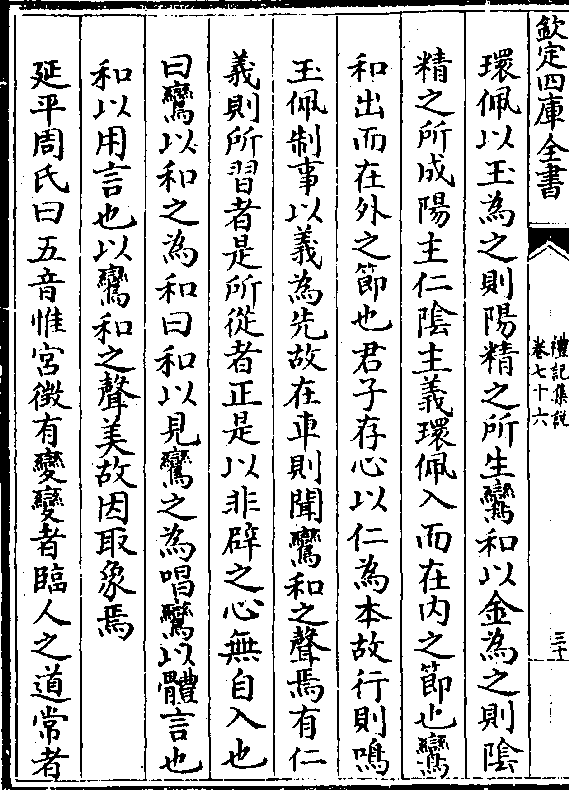 欽定四庫全書
禮記集説
卷七十六
三十
環佩以玉為之則陽精之所生鸞和以金為之則陰
精之所成陽主仁陰主義環佩入而在内之節也鸞
和出而在外之節也君子存心以仁為本故行則鳴
玉佩制事以義為先故在車則聞鸞和之聲焉有仁
義則所習者是所從者正是以非辟之心無自入也
曰鸞以和之為和曰和以見鸞之為唱鸞以體言也
和以用言也以鸞和之聲美故因取象焉
延平周氏曰五音惟宮徴有變變者臨人之道常者